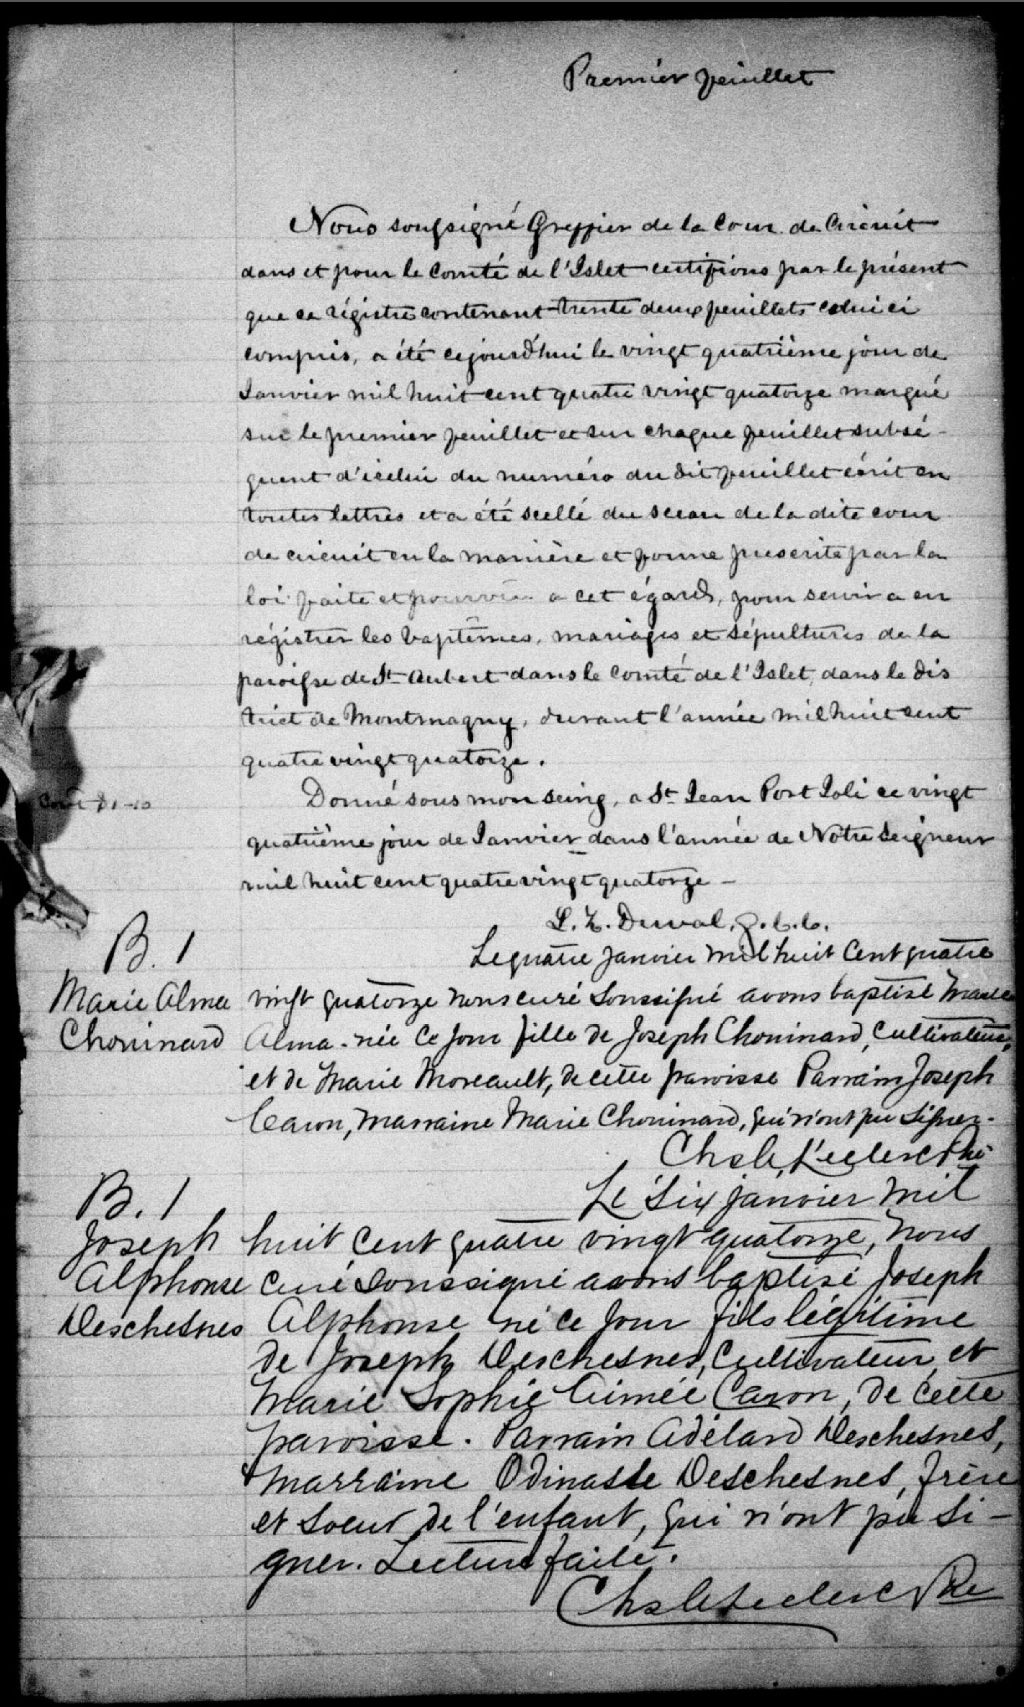 Premier feuillet
Nous soussigné Greffier de la Cour de Circuit
dans et pour le Comté de l'Islet certifions par le présent
que ce régistre contenant trente deux feuillets celui ci
compris, a été cejourd'hui le vingt quatrième jour de
Janvier mil huit cent quatre vingt quatorze marqué
sur le premier feuillet et sur chaque feuillet subsé-
quent d'icelui du numéro du dit feuillet écrit en
toutes lettres et a été scellé du sceau de la dite cour
de circuit en la manière et forme prescrite par la
loi faite et pourvue a cet égard, pour servir a en
régistrer les baptêmes, mariages et sépultures de la
paroisse de St Aubert dans le Comté de l'Islet, dans le Dis
trict de Montmagny, durant l'année mil huit cent
quatre vingt quatorze.
Donné sous mon seing, a St Jean Port Joli ce vingt
quatrième jour de Janvier dans l'année de Notre Seigneur
mil huit cent quatre vingt quatorze -
L. Z. Duval, g.c.c.
B. 1
Marie Alma
Chouinard
Le quatre janvier mil huit Cent quatre
vingt quatorze nous curé soussigné avons baptisé Marie
Alma - née ce jour fille de Joseph Chouinard, Cultivateur,
et de Marie Moreault, de cette paroisse Parrain Joseph
Caron, Marraine Marie Chouinard, qui n'ont pu signer -
Chs Leclerc Ptre
B. 1
Joseph
Alphonse
Deschesnes
Le Six janvier mil
huit cent quatre vingt quatorze, nous
curé soussigné avons baptisé Joseph
Alphonse né ce jour fils légitime
de Joseph Deschesnes, Cultivateur et
Marie Sophie Aimée Caron, de cette
paroisse. Parrain Adélard Deschesnes,
Marraine Odinasse Deschesnes, frère
et soeur de l'enfant, qui n'ont pu si-
gner. Lecture faite.
Chs Leclerc Ptre